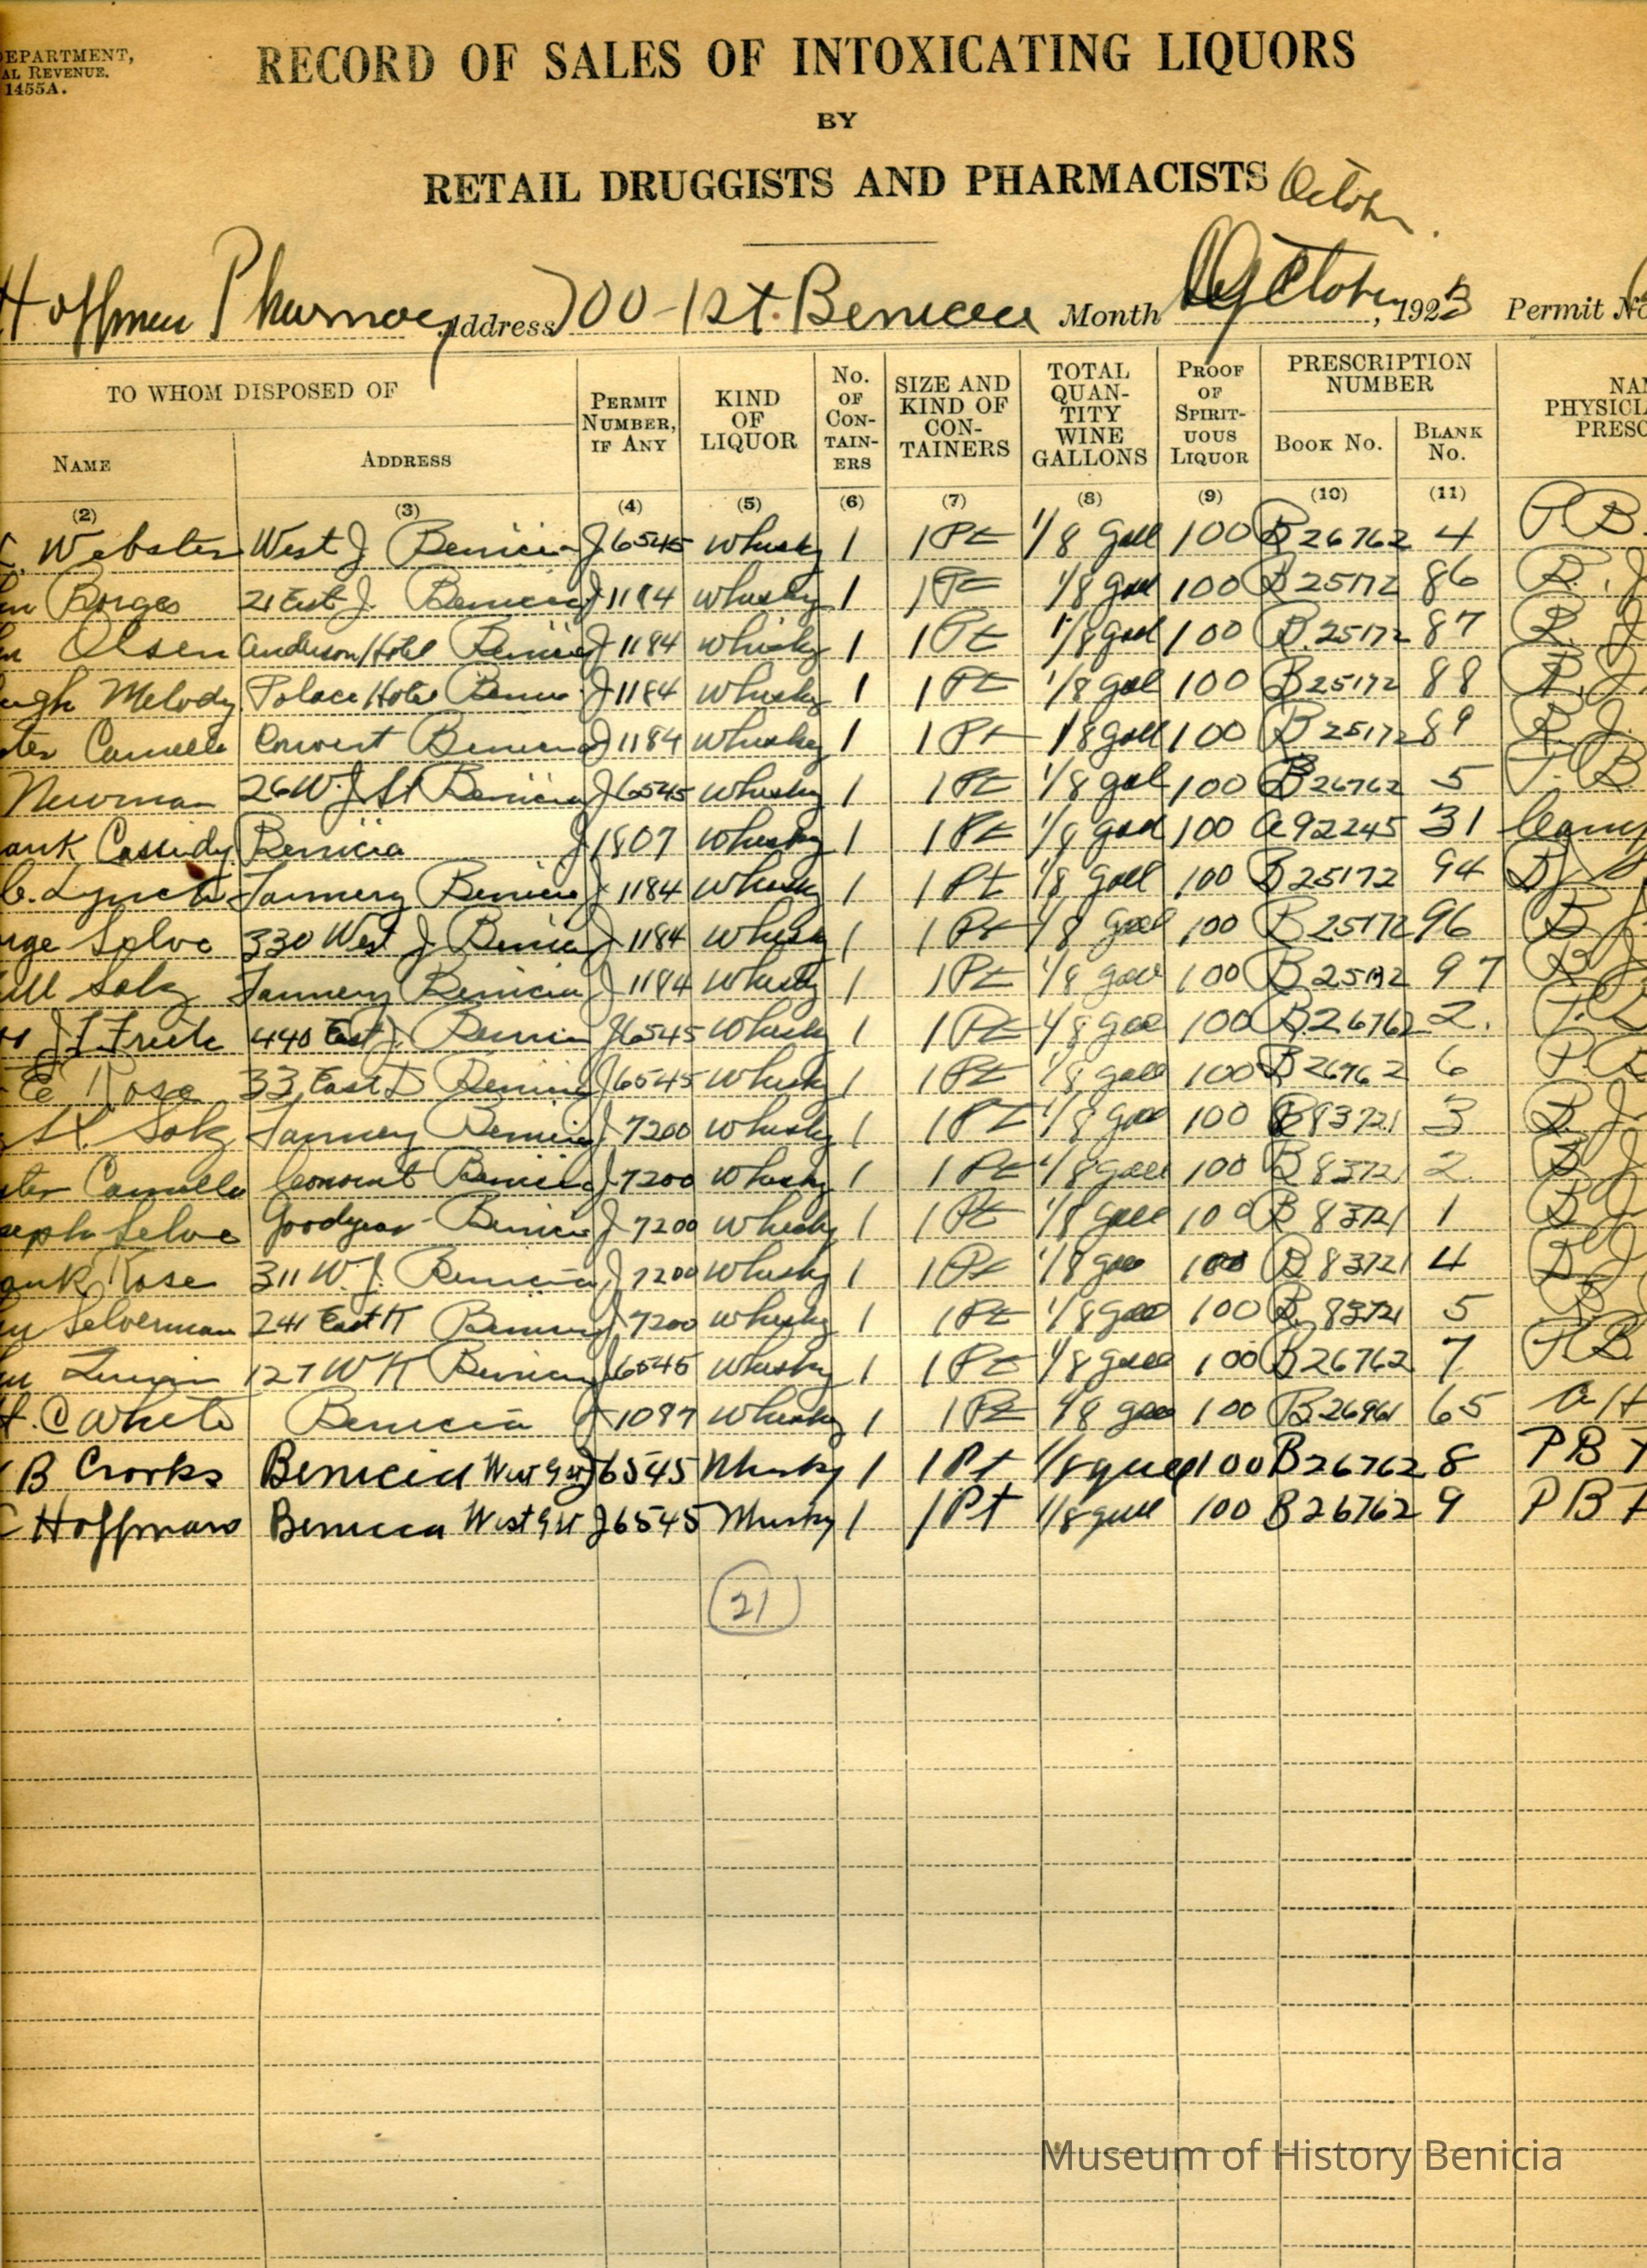 DEPARTMENT,
AL REVENUE.
1455A.
RECORD OF SALES OF INTOXICATING LIQUORS
BY
RETAIL DRUGGISTS AND PHARMACISTS
Hoffman Pharmacy Address 700-1st. Benicia Month October, 1923 Permit No
TO WHOM DISPOSED OF
NAME
ADDRESS
PERMIT NUMBER, IF ANY
KIND OF LIQUOR
No. OF CON-TAIN-ERS
SIZE AND KIND OF CON-TAINERS
TOTAL QUAN-TITY WINE GALLONS
PROOF OF SPIRIT-UOUS LIQUOR
PRESCRIPTION NUMBER
BOOK No.
BLANK No.
(2) (3) (4) (5) (6) (7) (8) (9) (10) (11)
Webster West J Benicia J6545 whisky 1 1 Pt 1/8 gall 100 B 26762 4 P B.
Borges 21 East J. Benicia J1184 whisky 1 1 Pt 1/8 gal 100 B 25172 86 R. J
Olsen Anderson Hotel Benicia J1184 whisky 1 1 Pt 1/8 gal 100 B.25172 87 R. J
Melody Palace Hotel J1184 whisky 1 1 Pt 1/8 gal 100 B25172 88 R. J.
Convent Benicia J1184 whisky 1 1 Pt 1/8 gall 100 B 25172 89 R. J.
Newman 26 W. J St Benicia J6545 whisky 1 1 Pt 1/8 gal 100 B26762 5 P. B
ank Cassidy Benicia J1807 whisky 1 1 Pt 1/8 gal 100 A92245 31
C. Lynch Tannery Benicia J1184 whisky 1 1 Pt 1/8 gall 100 B25172 94
rge Selva 330 West J. Benicia J1184 whisky 1 1 Pt 1/8 gal 100 B 25172 96
Tannery Benicia J1184 whisky 1 1 Pt 1/8 gal 100 97
440 East J. Benicia J6545 whisky 1 1 Pt 1/8 gal 100 B26762 2.
E Rose 33 East D Benicia J6545 whisky 1 1 Pt 1/8 gall 100 B26762 6
Tannery Benicia J7200 whisky 1 1 Pt 1/8 gal 100 B83721 3
Convent Benicia J7200 whisky 1 1 Pt 1/8 gall 100 B83721 2.
seph Selva Goodyear - Benicia J7200 whisky 1 1 Pt 1/8 gall 100 B 83721 1
ank Rose 311 W. J. Benicia J7200 whisky 1 1 Pt 1/8 gal 100 B 83721 4
Silverman 241 East K Benicia J7200 whisky 1 1 Pt 1/8 gal 100 B 83721 5
127 W K Benicia J6545 whisky 1 1 Pt 1/8 gall 100 B26762 7 P.B.
H. C White Benicia J1087 whisky 1 1 Pt 1/8 gal 100 B26961 65 A H
B Crooks Benicia West 9 st J6545 Whisky 1 1 Pt 1/8 gall 100 B26762 8 P B F
Hoffman Benicia West 9 st J6545 Whisky 1 1 Pt 1/8 gall 100 B26762 9 P B F
21
Museum of History Benicia